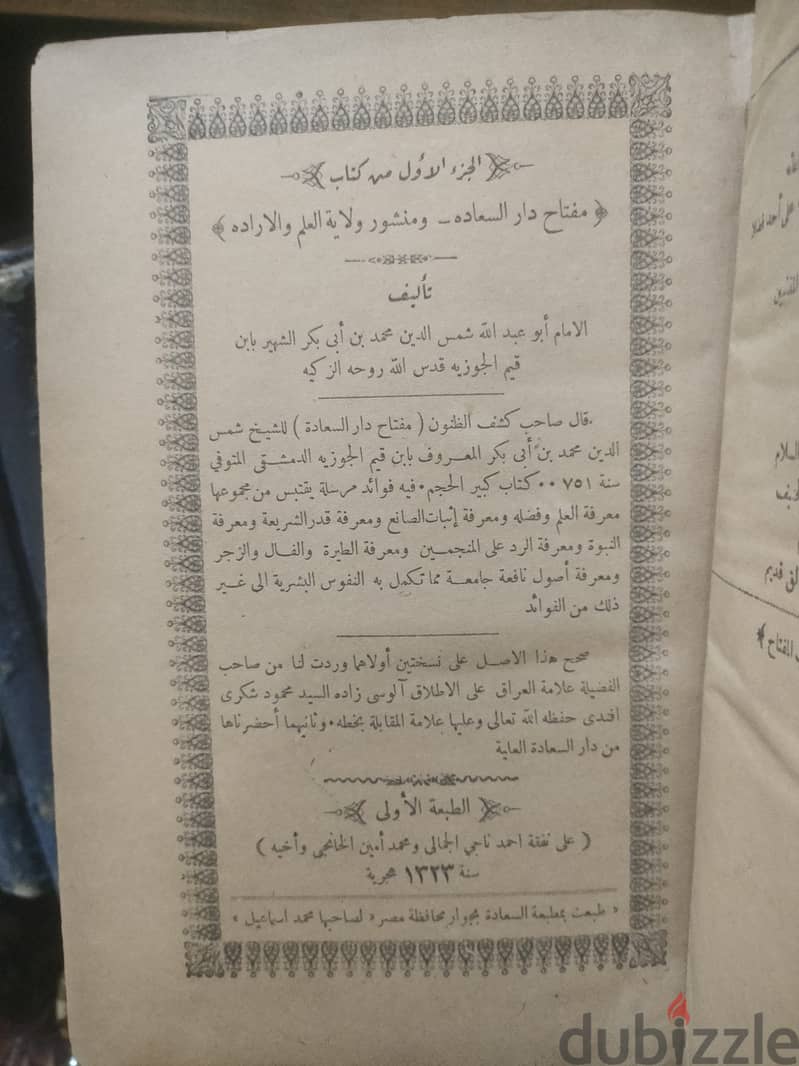 الجزء الأول من كتاب
﴿ مفتاح دار السعاده ـ ومنشور ولاية العلم والاراده ﴾
تأليف
الامام أبو عبد الله شمس الدين محمد بن أبى بكر الشهير بابن
قيم الجوزيه قدس الله روحه الزكيه
قال صاحب كشف الظنون ( مفتاح دار السعادة ) للشيخ شمس
الدين محمد بن أبى بكر المعروف بابن قيم الجوزيه الدمشقى المتوفي
سنة ٧٥١ ٠٠ كتاب كبير الحجم ٠ فيه فوائد مرسلة يقتبس من مجموعها
معرفة العلم وفضله ومعرفة إثبات الصانع ومعرفة قدر الشريعة ومعرفة
النبوة ومعرفة الرد على المنجمين ومعرفة الطيرة والفال والزجر
ومعرفة أصول نافعة جامعة مما تكمل به النفوس البشرية الى غير
ذلك من الفوائد
صحح هذا الاصل على نسختين أولاهما وردت لنا من صاحب
الفضيلة علامة العراق على الاطلاق آلوسى زاده السيد محمود شكرى
افندى حفظه الله تعالى وعليها علامة المقابلة بخطه ٠ وثانيهما أحضرناها
من دار السعادة العلية
الطبعة الأولى
( على نفقة احمد ناجي الجمالى ومحمد أمين الخانجى وأخيه )
سنة ١٣٢٣ هجرية
« طبعت بمطبعة السعادة بجوار محافظة مصر » لصاحبها محمد اسماعيل »
السلام
dubizzle